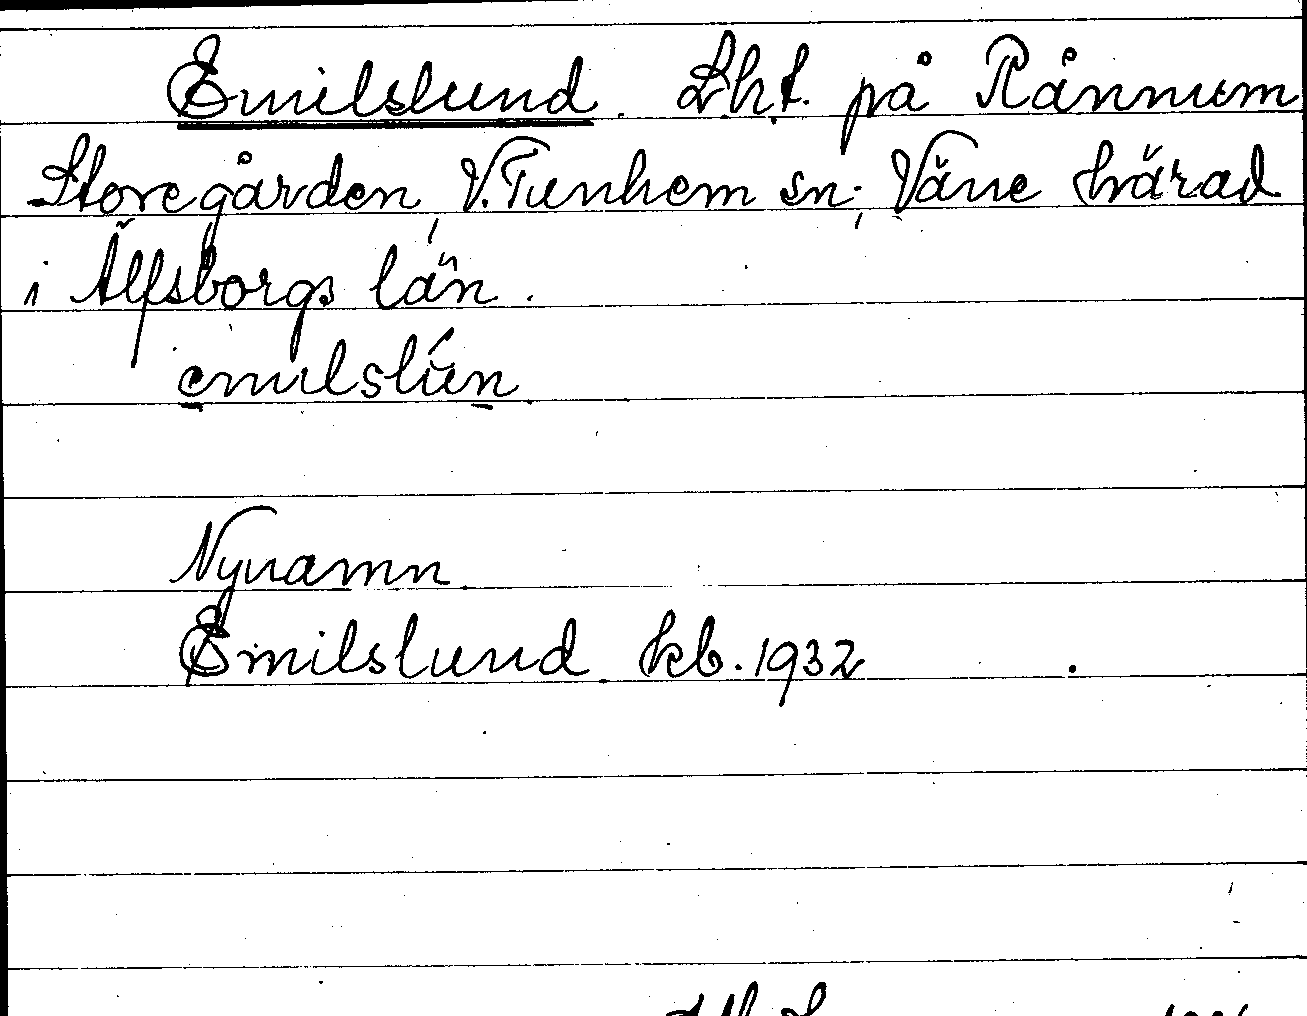 Emilslund. Lht. på Rånnum
Storegården, V. Tunhem sn; Väne härad
i Älfsborgs län.
emilslún.
Nynamn.
Emilslund. kb. 1932.